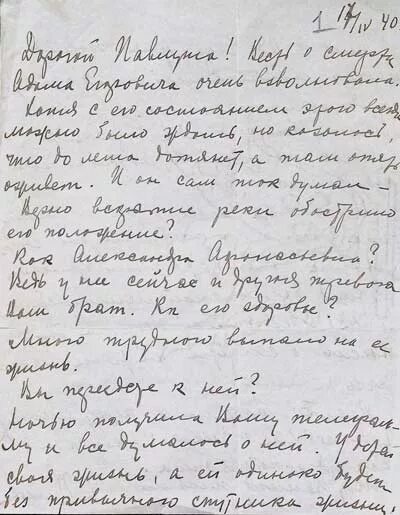 1 17/IV 40
Дорогой Павлуша! Весть о смерти
Адама Егоровича очень взволновала.
Хотя с его состоянием этого всегда
можно было ждать, но казалось,
что до лета дотянет, а там опять
оживет. И он сам так думал –
Верно вскрытие реки обострило
его положение?
Как Александра Афанасьевна?
Ведь у ней сейчас и другая тревога
Ваш брат. Как его здоровье?
Много трудного выпало на ее
жизнь.
Вы переедете к ней?
Ночью получила Вашу телеграм-
му и все думалось о ней. У детей
своя жизнь, а ей одиноко будет
без привычного спутника жизни.